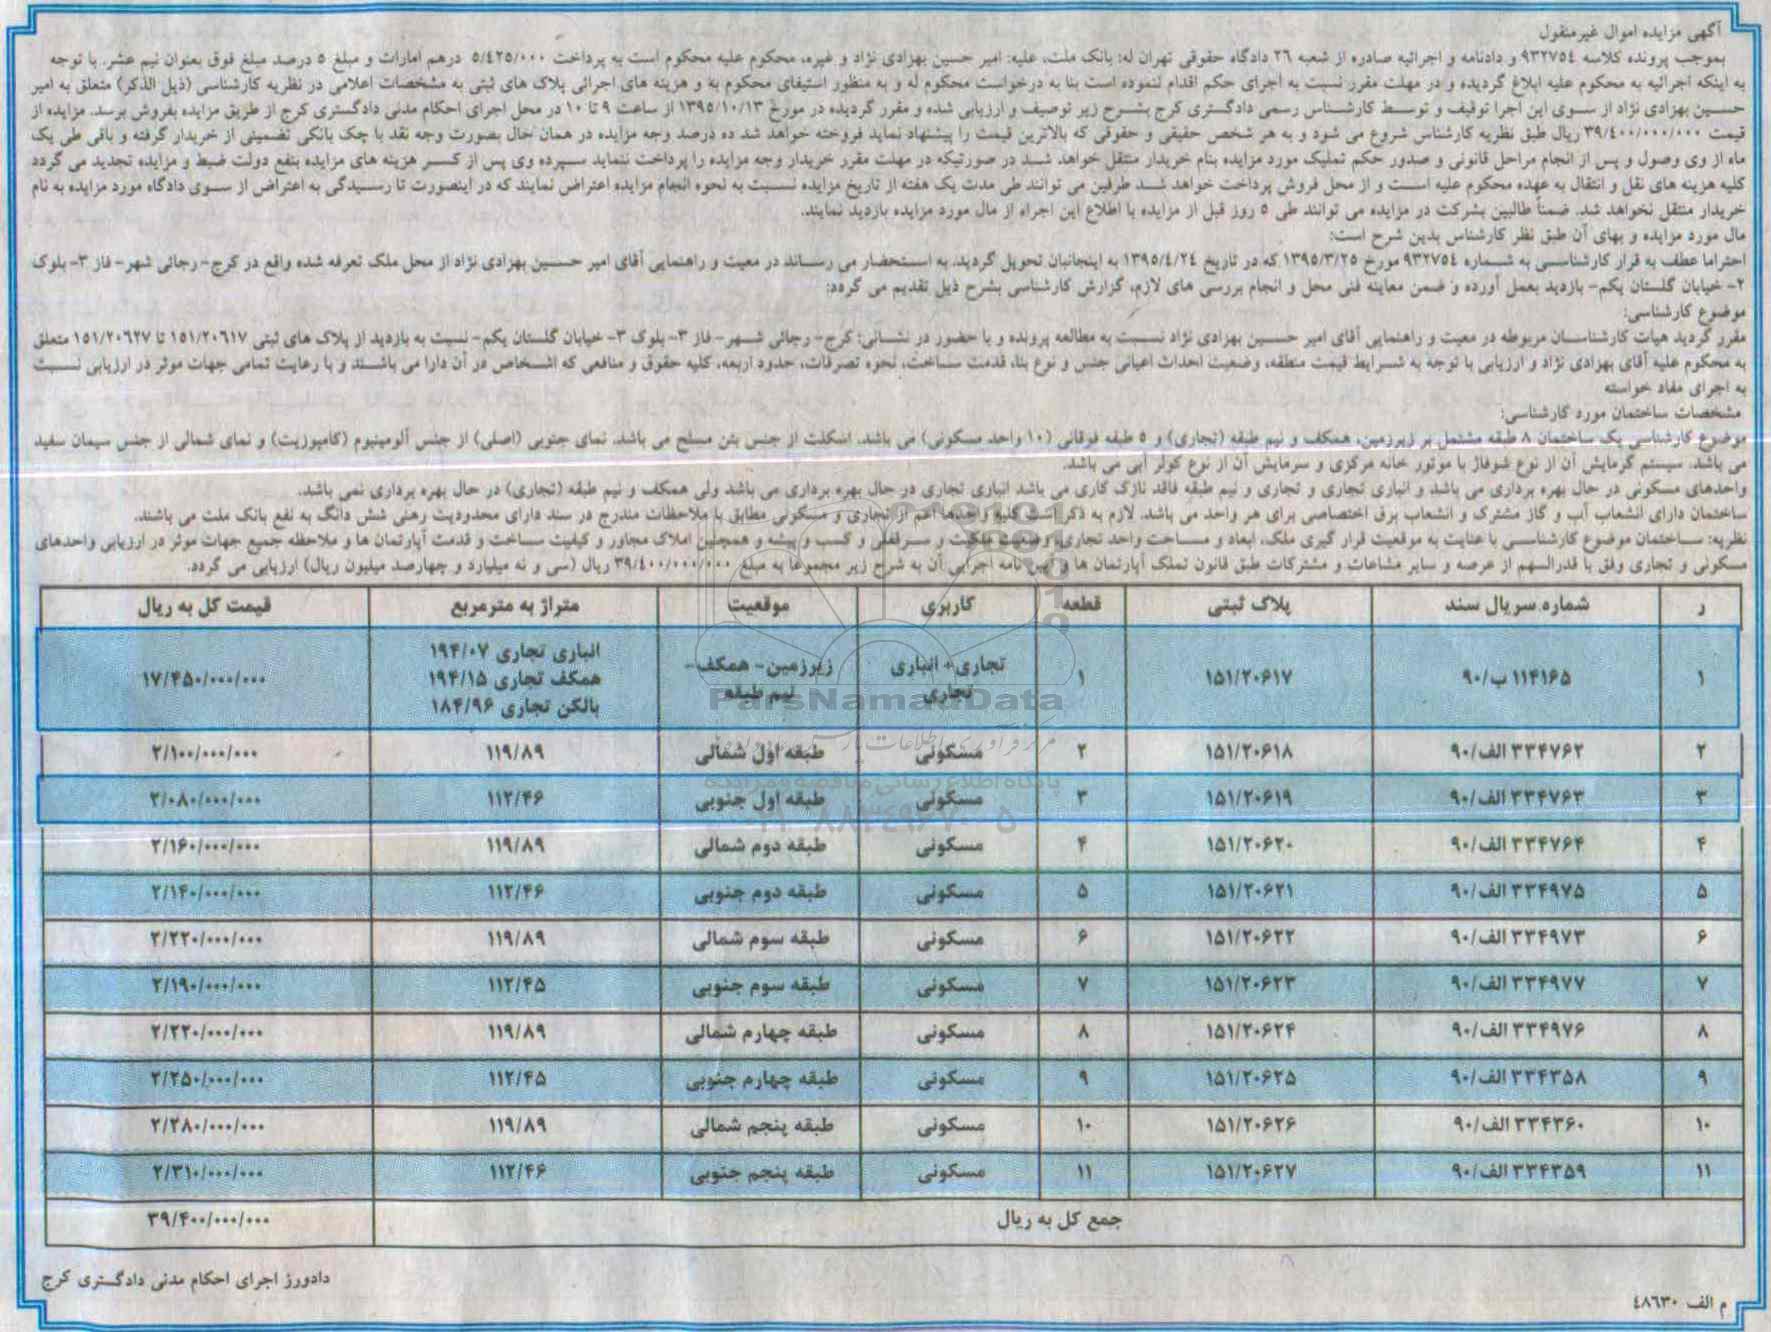 آگهی مزایده اموال غیرمنقول
بموجب پرونده کلاسه ۹۳۲۷۵٤ و دادنامه و اجرائیه صادره از شعبه ۲٦ دادگاه حقوقی تهران له: بانک ملت، علیه: امیر حسین بهزادی نژاد و غیره، محکوم علیه محکوم است به پرداخت ۵/٤۲۵/۰۰۰ درهم امارات و مبلغ ۵ درصد مبلغ فوق بعنوان نیم عشر. با توجه
به اینکه اجرائیه به محکوم علیه ابلاغ گردیده و در مهلت مقرر نسبت به اجرای حکم اقدام ننموده است بنا به درخواست محکوم له و به منظور استیفای محکوم به و هزینه های اجرائی پلاک های ثبتی به مشخصات اعلامی در نظریه کارشناسی (ذیل الذکر) متعلق به امیر
حسین بهزادی نژاد از سوی این اجرا توقیف و توسط کارشناس رسمی دادگستری کرج بشرح زیر توصیف و ارزیابی شده و مقرر گردیده در مورخ ۱۳۹۵/۱۰/۱۳ از ساعت ۹ تا ۱۰ در محل اجرای احکام مدنی دادگستری کرج از طریق مزایده بفروش برسد. مزایده از
قیمت ۳۹/٤۰۰/۰۰۰/۰۰۰ ریال طبق نظریه کارشناس شروع می شود و به هر شخص حقیقی و حقوقی که بالاترین قیمت را پیشنهاد نماید فروخته خواهد شد ده درصد وجه مزایده در همان حال بصورت وجه نقد یا چک بانکی تضمینی از خریدار گرفته و باقی طی یک
ماه از وی وصول و پس از انجام مراحل قانونی و صدور حکم تملیک مورد مزایده بنام خریدار منتقل خواهد شد در صورتیکه در مهلت مقرر خریدار وجه مزایده را پرداخت ننماید سپرده وی پس از کسر هزینه های مزایده بنفع دولت ضبط و مزایده تجدید می گردد
کلیه هزینه های نقل و انتقال به عهده محکوم علیه است و از محل فروش پرداخت خواهد شد طرفین می توانند طی مدت یک هفته از تاریخ مزایده نسبت به نحوه انجام مزایده اعتراض نمایند که در اینصورت تا رسیدگی به اعتراض از سوی دادگاه مورد مزایده به نام
خریدار منتقل نخواهد شد. ضمناً طالبین بشرکت در مزایده می توانند طی ۵ روز قبل از مزایده با اطلاع این اجراء از مال مورد مزایده بازدید نمایند.
مال مورد مزایده و بهای آن طبق نظر کارشناس بدین شرح است:
احتراما عطف به قرار کارشناسی به شماره ۹۳۲۷۵٤ مورخ ۱۳۹۵/۳/۲۵ که در تاریخ ۱۳۹۵/٤/۲٤ به اینجانبان تحویل گردید، به استحضار می رساند در معیت و راهنمایی آقای امیر حسین بهزادی نژاد از محل ملک تعرفه شده واقع در کرج- رجائی شهر- فاز ۳- بلوک
۲- خیابان گلستان یکم- بازدید بعمل آورده و ضمن معاینه فنی محل و انجام بررسی های لازم، گزارش کارشناسی بشرح ذیل تقدیم می گردد:
موضوع کارشناسی:
مقرر گردید هیات کارشناسان مربوطه در معیت و راهنمایی آقای امیر حسین بهزادی نژاد نسبت به مطالعه پرونده و با حضور در نشانی: کرج- رجائی شهر- فاز ۳- بلوک ۳- خیابان گلستان یکم- نسبت به بازدید از پلاک های ثبتی ۱۵۱/۲۰٦۱۷ تا ۱۵۱/۲۰٦۲۷ متعلق
به محکوم علیه آقای بهزادی نژاد و ارزیابی با توجه به شرایط قیمت منطقه، وضعیت احداث اعیانی جنس و نوع بنا، قدمت ساخت، نحوه تصرفات، حدود اربعه، کلیه حقوق و منافعی که اشخاص در آن دارا می باشند و با رعایت تمامی جهات موثر در ارزیابی نسبت
به اجرای مفاد خواسته
مشخصات ساختمان مورد کارشناسی:
موضوع کارشناسی یک ساختمان ۸ طبقه مشتمل بر زیرزمین، همکف و نیم طبقه (تجاری) و ۵ طبقه فوقانی (۱۰ واحد مسکونی) می باشد. اسکلت از جنس بتن مسلح می باشد. نمای جنوبی (اصلی) از جنس آلومینیوم (کامپوزیت) و نمای شمالی از جنس سیمان سفید
می باشد. سیستم گرمایش آن از نوع شوفاژ با موتور خانه مرکزی و سرمایش آن از نوع کولر آبی می باشد.
واحدهای مسکونی در حال بهره برداری می باشد و انباری تجاری و تجاری و نیم طبقه فاقد نازک کاری می باشد انباری تجاری در حال بهره برداری می باشد ولی همکف و نیم طبقه (تجاری) در حال بهره برداری نمی باشد.
ساختمان دارای انشعاب آب و گاز مشترک و انشعاب برق اختصاصی برای هر واحد می باشد. لازم به ذکر است کلیه واحدها اعم از تجاری و مسکونی مطابق با ملاحظات مندرج در سند دارای محدودیت رهنی شش دانگ به نفع بانک ملت می باشند.
نظریه: ساختمان موضوع کارشناسی با عنایت به موقعیت قرار گیری ملک، ابعاد و مساحت واحد تجاری، وضعیت مالکیت و سرقفلی و کسب و پیشه و همچنین املاک مجاور و کیفیت ساخت و قدمت آپارتمان ها و ملاحظه جمیع جهات موثر در ارزیابی واحدهای
مسکونی و تجاری وفق با قدرالسهم از عرصه و سایر مشاعات و مشترکات طبق قانون تملک آپارتمان ها و آیین نامه اجرایی آن به شرح زیر مجموعاً به مبلغ ۳۹/٤۰۰/۰۰۰/۰۰۰ ریال (سی و نه میلیارد و چهارصد میلیون ریال) ارزیابی می گردد.
ر شماره سریال سند پلاک ثبتی قطعه کاربری موقعیت متراژ به مترمربع قیمت کل به ریال
۱ ۱۱۴۱۶۵ ب/۹۰ ۱۵۱/۲۰۶۱۷ ۱ تجاری+ انباری تجاری زیرزمین- همکف- نیم طبقه انباری تجاری ۱۹۴/۰۷ همکف تجاری ۱۹۴/۱۵ بالکن تجاری ۱۸۴/۹۶ ۱۷/۴۵۰/۰۰۰/۰۰۰
۲ ۳۳۴۷۶۲ الف/۹۰ ۱۵۱/۲۰۶۱۸ ۲ مسکونی طبقه اول شمالی ۱۱۹/۸۹ ۲/۱۰۰/۰۰۰/۰۰۰
۳ ۳۳۴۷۶۳ الف/۹۰ ۱۵۱/۲۰۶۱۹ ۳ مسکونی طبقه اول جنوبی ۱۱۲/۴۶ ۲/۰۸۰/۰۰۰/۰۰۰
۴ ۳۳۴۷۶۴ الف/۹۰ ۱۵۱/۲۰۶۲۰ ۴ مسکونی طبقه دوم شمالی ۱۱۹/۸۹ ۲/۱۶۰/۰۰۰/۰۰۰
۵ ۳۳۴۹۷۵ الف/۹۰ ۱۵۱/۲۰۶۲۱ ۵ مسکونی طبقه دوم جنوبی ۱۱۲/۴۶ ۲/۱۴۰/۰۰۰/۰۰۰
۶ ۳۳۴۹۷۳ الف/۹۰ ۱۵۱/۲۰۶۲۲ ۶ مسکونی طبقه سوم شمالی ۱۱۹/۸۹ ۲/۲۲۰/۰۰۰/۰۰۰
۷ ۳۳۴۹۷۷ الف/۹۰ ۱۵۱/۲۰۶۲۳ ۷ مسکونی طبقه سوم جنوبی ۱۱۲/۴۵ ۲/۱۹۰/۰۰۰/۰۰۰
۸ ۳۳۴۹۷۶ الف/۹۰ ۱۵۱/۲۰۶۲۴ ۸ مسکونی طبقه چهارم شمالی ۱۱۹/۸۹ ۲/۲۲۰/۰۰۰/۰۰۰
۹ ۳۳۴۳۵۸ الف/۹۰ ۱۵۱/۲۰۶۲۵ ۹ مسکونی طبقه چهارم جنوبی ۱۱۲/۴۵ ۲/۲۵۰/۰۰۰/۰۰۰
۱۰ ۳۳۴۳۶۰ الف/۹۰ ۱۵۱/۲۰۶۲۶ ۱۰ مسکونی طبقه پنجم شمالی ۱۱۹/۸۹ ۲/۲۸۰/۰۰۰/۰۰۰
۱۱ ۳۳۴۳۵۹ الف/۹۰ ۱۵۱/۲۰۶۲۷ ۱۱ مسکونی طبقه پنجم جنوبی ۱۱۲/۴۶ ۲/۳۱۰/۰۰۰/۰۰۰
جمع کل به ریال ۳۹/۴۰۰/۰۰۰/۰۰۰
دادورز اجرای احکام مدنی دادگستری کرج
م الف ٤۸٦۳۰
ParsNamadData
پایگاه اطلاع رسانی مناقصه و مزایده